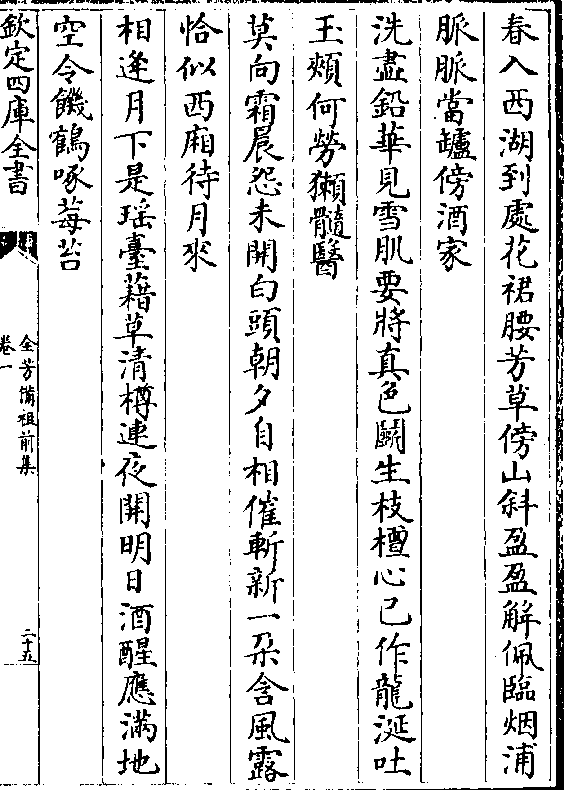 春入西湖到處花裙腰芳草傍山斜盈盈解佩臨烟浦
脈脈當罏傍酒家
洗盡鉛華見雪肌要將真色鬭生枝檀心已作龍涎吐
玉頰何勞獺髓醫
莫向霜晨怨未開白頭朝夕自相催斬新一朵含風露
恰似西廂待月來
相逢月下是瑶臺藉草清樽連夜開明日酒醒應滿地
空令饑鶴啄莓苔
欽定四庫全書
全芳備祖前集
卷一
二十五